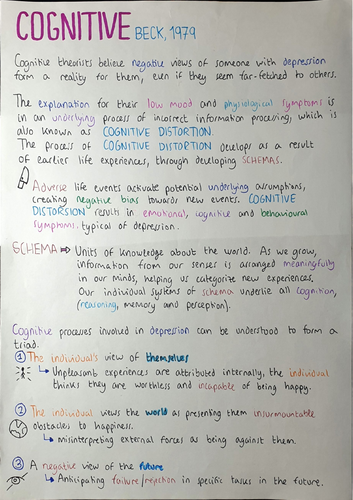 COGNITIVE BECK, 1979
Cognitive theorists believe negative views of someone with depression
form a reality for them, even if they seem far-fetched to others.
The explanation for their low mood and physiological symptoms is
in an underlying process of incorrect information processing, which is
also known as COGNITIVE DISTORTION.
The process of COGNITIVE DISTORTION develops as a result
of earlier life experiences, through developing SCHEMAS.
Adverse life events activate potential underlying assumptions,
creating negative bias towards new events. COGNITIVE
DISTORSION results in emotional, cognitive and behavioural
symptoms typical of depression.
SCHEMA ⇒ Units of knowledge about the world. As we grow,
information from our senses is arranged meaningfully
in our minds, helping us categorize new experiences.
Our individual systems of schema underlie all cognition,
(reasoning, memory and perception).
Cognitive processes involved in depression can be understood to form a
triad.
① The individual's view of themselves
↳ Unpleasant experiences are attributed internally, the individual
thinks they are worthless and incapable of being happy.
② The individual views the world as presenting them insurmountable
obstacles to happiness.
↳ misinterpreting external forces as being against them.
③ A negative view of the future
↳ Anticipating failure/rejection in specific tasks in the future.